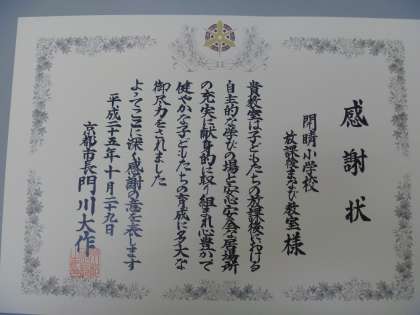 感謝状
開睛小学校
放課後まなび教室様
貴教室は子どもたちの放課後における
自主的な学びの場と安心安全な居場所
の充実に献身的に取り組まれ心豊かで
健やかな子どもたちの育成に多大な
御尽力をされました
よってここに深く感謝の意を表します
平成二十五年十月二十九日
京都市長 門川大作